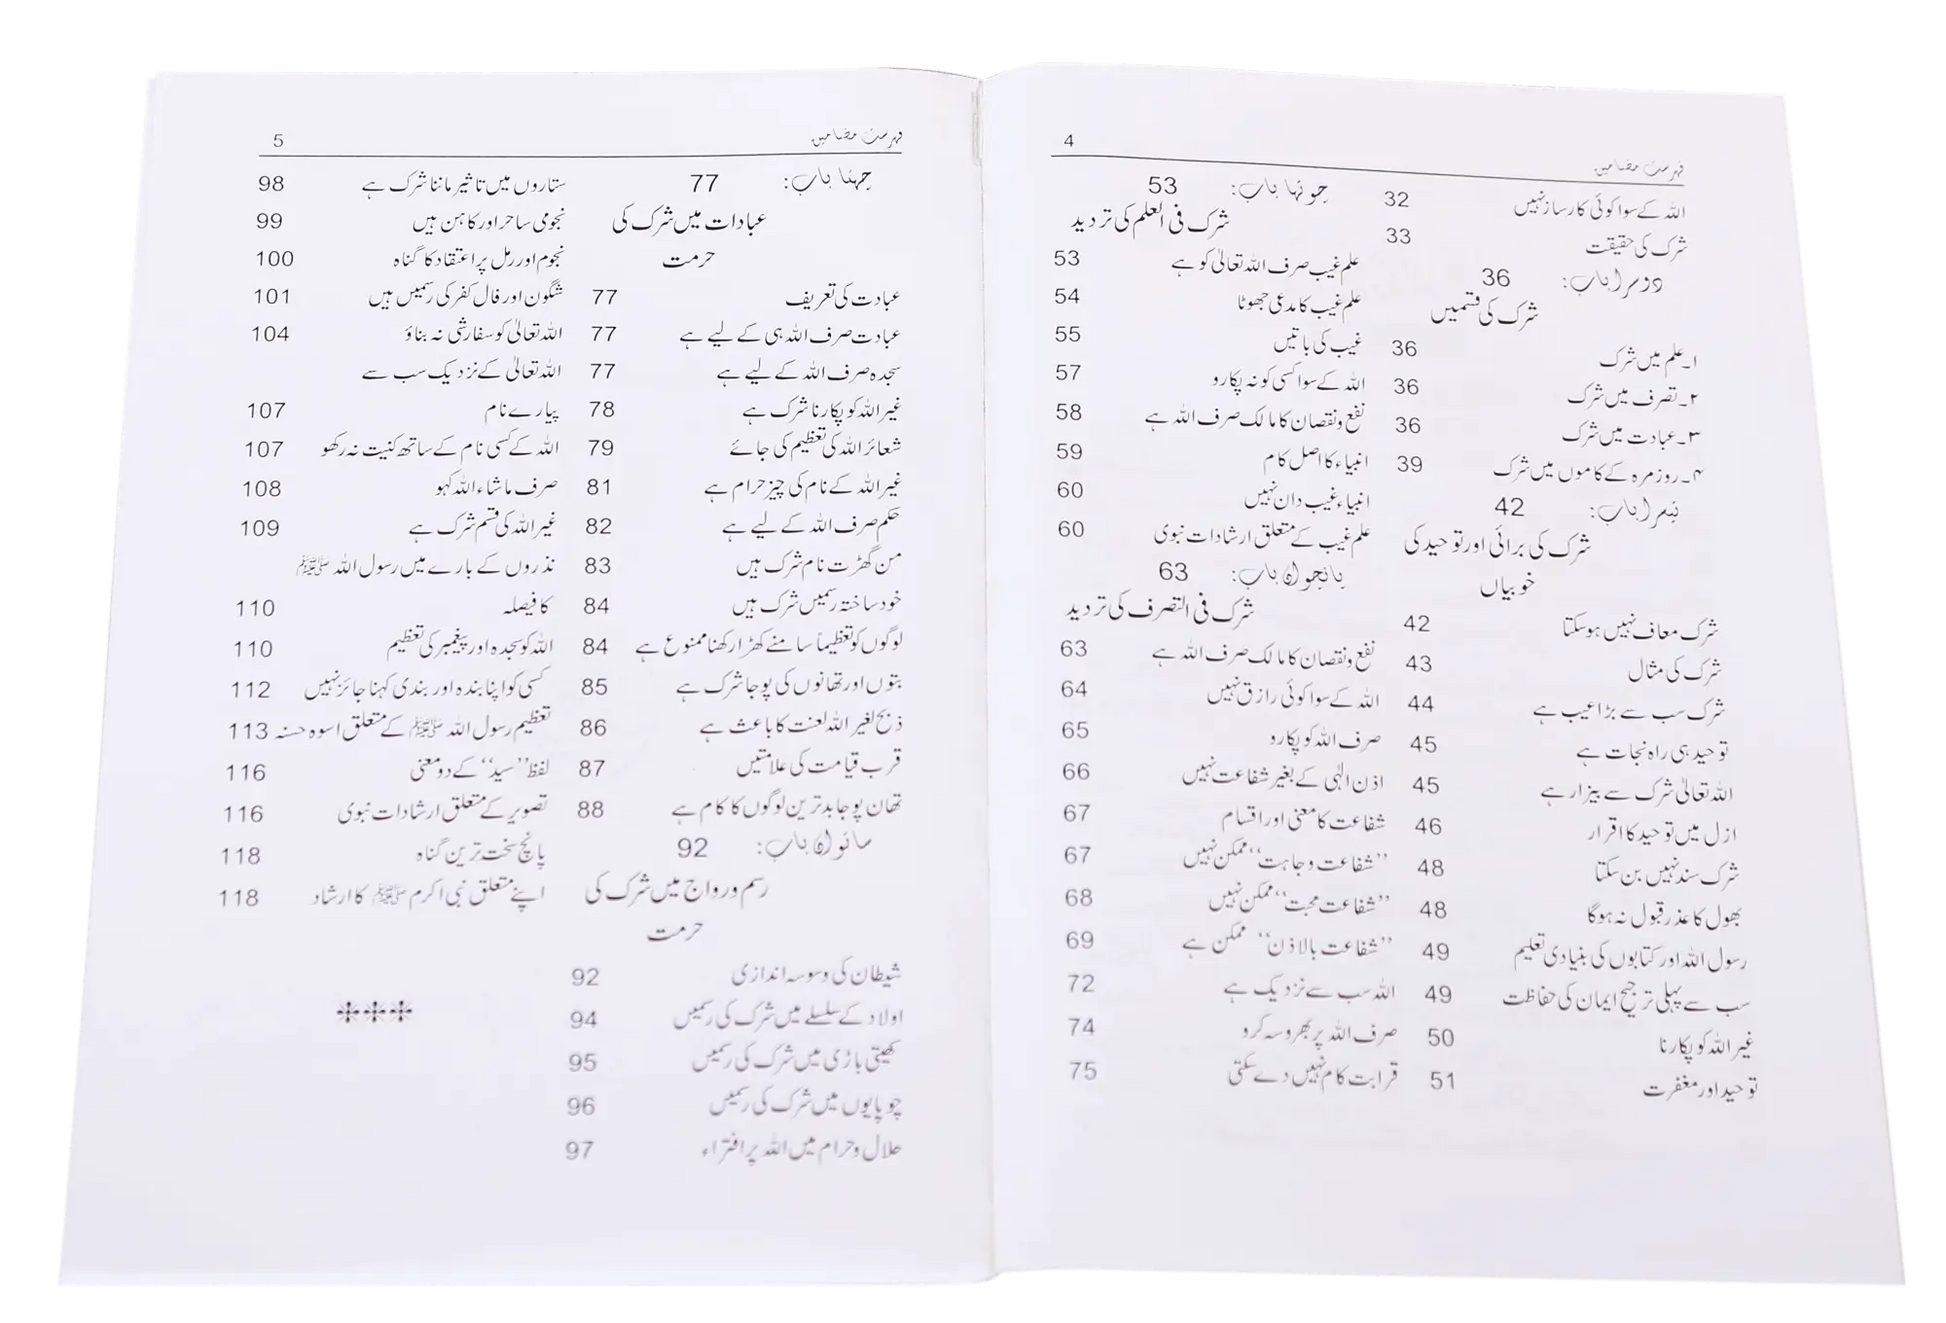 فہرست مضامین
4
اللہ کے سوا کوئی کارساز نہیں 32
شرک کی حقیقت 33
دوسرا باب: 36
شرک کی قسمیں
۱۔علم میں شرک 36
۲۔تصرف میں شرک 36
۳۔عبادت میں شرک 36
۴۔روزمرہ کے کاموں میں شرک 39
تیسرا باب: 42
شرک کی برائی اور توحید کی
خوبیاں
شرک معاف نہیں ہوسکتا 42
شرک کی مثال 43
شرک سب سے بڑا عیب ہے 44
توحید ہی راہ نجات ہے 45
اللہ تعالیٰ شرک سے بیزار ہے 45
ازل میں توحید کا اقرار 46
شرک سند نہیں بن سکتا 48
بھول کا عذر قبول نہ ہوگا 48
رسول اللہ اور کتابوں کی بنیادی تعلیم 49
سب سے پہلی ترجیح ایمان کی حفاظت 49
غیر اللہ کو پکارنا 50
توحید اور مغفرت 51
چوتھا باب: 53
شرک فی العلم کی تردید
علم غیب صرف اللہ تعالیٰ کو ہے 53
علم غیب کا مدعی جھوٹا 54
غیب کی باتیں 55
اللہ کے سوا کسی کو نہ پکارو 57
نفع ونقصان کا مالک صرف اللہ ہے 58
انبیاء کا اصل کام 59
انبیاء غیب دان نہیں 60
علم غیب کے متعلق ارشادات نبوی 60
پانچواں باب: 63
شرک فی التصرف کی تردید
نفع ونقصان کا مالک صرف اللہ ہے 63
اللہ کے سوا کوئی رازق نہیں 64
صرف اللہ کو پکارو 65
اذن الٰہی کے بغیر شفاعت نہیں 66
شفاعت کا معنی اور اقسام 67
’’شفاعت وجاہت‘‘ ممکن نہیں 67
’’شفاعت محبت‘‘ ممکن نہیں 68
’’شفاعت بالاذن‘‘ ممکن ہے 69
اللہ سب سے نزدیک ہے 72
صرف اللہ پر بھروسہ کرو 74
قرابت کام نہیں دے سکتی 75
فہرست مضامین
5
چھٹا باب: 77
عبادات میں شرک کی
حرمت
عبادت کی تعریف 77
عبادت صرف اللہ ہی کے لیے ہے 77
سجدہ صرف اللہ کے لیے ہے 77
غیر اللہ کو پکارنا شرک ہے 78
شعائر اللہ کی تعظیم کی جائے 79
غیر اللہ کے نام کی چیز حرام ہے 81
حکم صرف اللہ کے لیے ہے 82
من گھڑت نام شرک ہیں 83
خود ساختہ رسمیں شرک ہیں 84
لوگوں کو تعظیماً سامنے کھڑا رکھنا ممنوع ہے 84
بتوں اور تھانوں کی پوجا شرک ہے 85
ذبح لغیر اللہ لعنت کا باعث ہے 86
قرب قیامت کی علامتیں 87
تھان پوجا بدترین لوگوں کا کام ہے 88
ساتواں باب: 92
رسم ورواج میں شرک کی
حرمت
شیطان کی وسوسہ اندازی 92
اولاد کے سلسلے میں شرک کی رسمیں 94
کھیتی باڑی میں شرک کی رسمیں 95
چوپایوں میں شرک کی رسمیں 96
حلال وحرام میں اللہ پر افتراء 97
ستاروں میں تاثیر ماننا شرک ہے 98
نجومی ساحر اور کاہن ہیں 99
نجوم اور رمل پر اعتقاد کا گناہ 100
شگون اور فال کفر کی رسمیں ہیں 101
اللہ تعالیٰ کو سفارشی نہ بناؤ 104
اللہ تعالیٰ کے نزدیک سب سے
پیارے نام 107
اللہ کے کسی نام کے ساتھ کنیت نہ رکھو 107
صرف ماشاء اللہ کہو 108
غیر اللہ کی قسم شرک ہے 109
نذروں کے بارے میں رسول اللہ ﷺ
کا فیصلہ 110
اللہ کو سجدہ اور پیغمبر کی تعظیم 110
کسی کو اپنا بندہ اور بندی کہنا جائز نہیں 112
تعظیم رسول اللہ ﷺ کے متعلق اسوہ حسنہ 113
لفظ ’’سید‘‘ کے دو معنی 116
تصویر کے متعلق ارشادات نبوی 116
پانچ سخت ترین گناہ 118
اپنے متعلق نبی اکرم ﷺ کا ارشاد 118